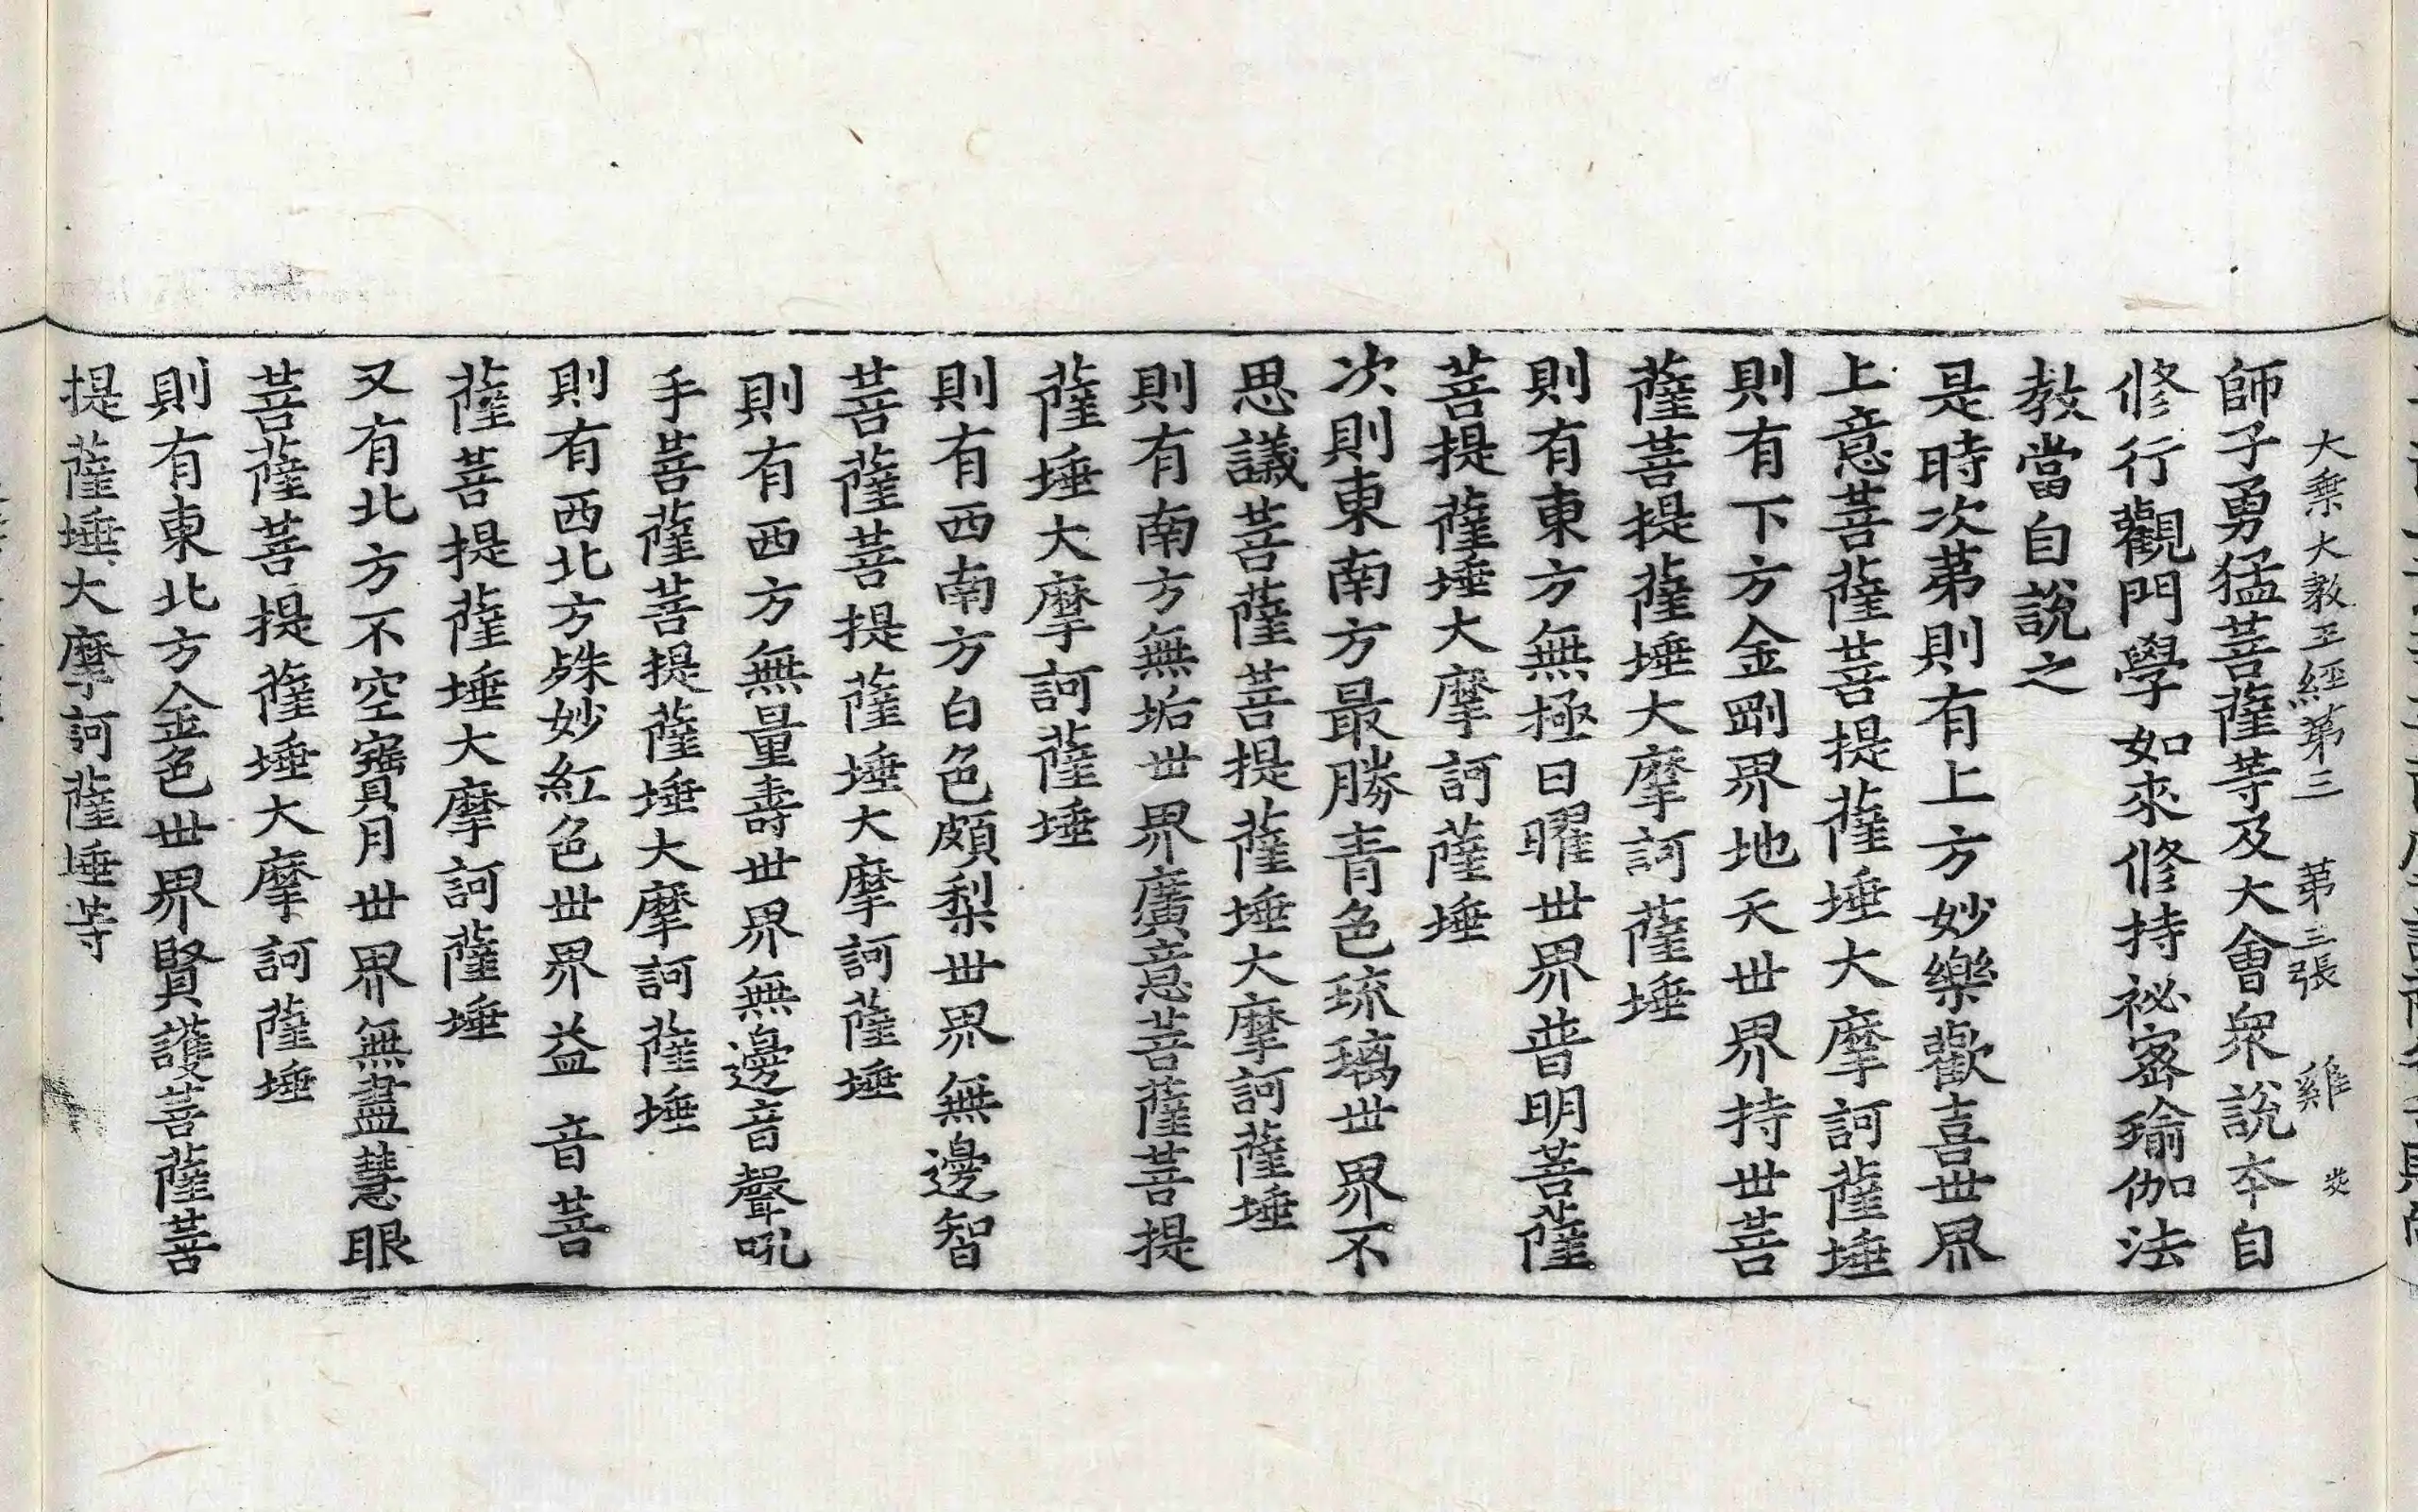 大乗大教王經第三　第三張　雞　炎
師子勇猛菩薩等及大會衆說本自
修行觀門學如來修持祕密瑜伽法
教當自說之
是時次第則有上方妙樂歡喜世界
上意菩薩菩提薩埵大摩訶薩埵
則有下方金剛界地天世界持世菩
薩菩提薩埵大摩訶薩埵
則有東方無極日曜世界普明菩薩
菩提薩埵大摩訶薩埵
次則東南方最勝青色琉璃世界不
思議菩薩菩提薩埵大摩訶薩埵
則有南方無垢世界廣意菩薩菩提
薩埵大摩訶薩埵
則有西南方白色頗梨世界無邊智
菩薩菩提薩埵大摩訶薩埵
則有西方無量壽世界無邊音聲吼
手菩薩菩提薩埵大摩訶薩埵
則有西北方殊妙紅色世界益音菩
薩菩提薩埵大摩訶薩埵
又有北方不空寶月世界無盡慧眼
菩薩菩提薩埵大摩訶薩埵
則有東北方金色世界賢護菩薩菩
提薩埵大摩訶薩埵等